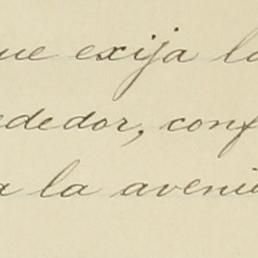 que exija la
ededor, conf
a la aveni